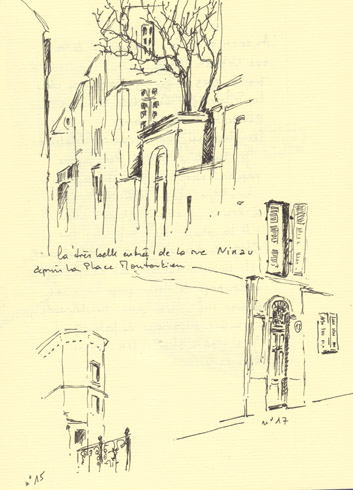 la très belle entrée de la rue Ninau
depuis la Place Montoulieu
n° 17
n° 15